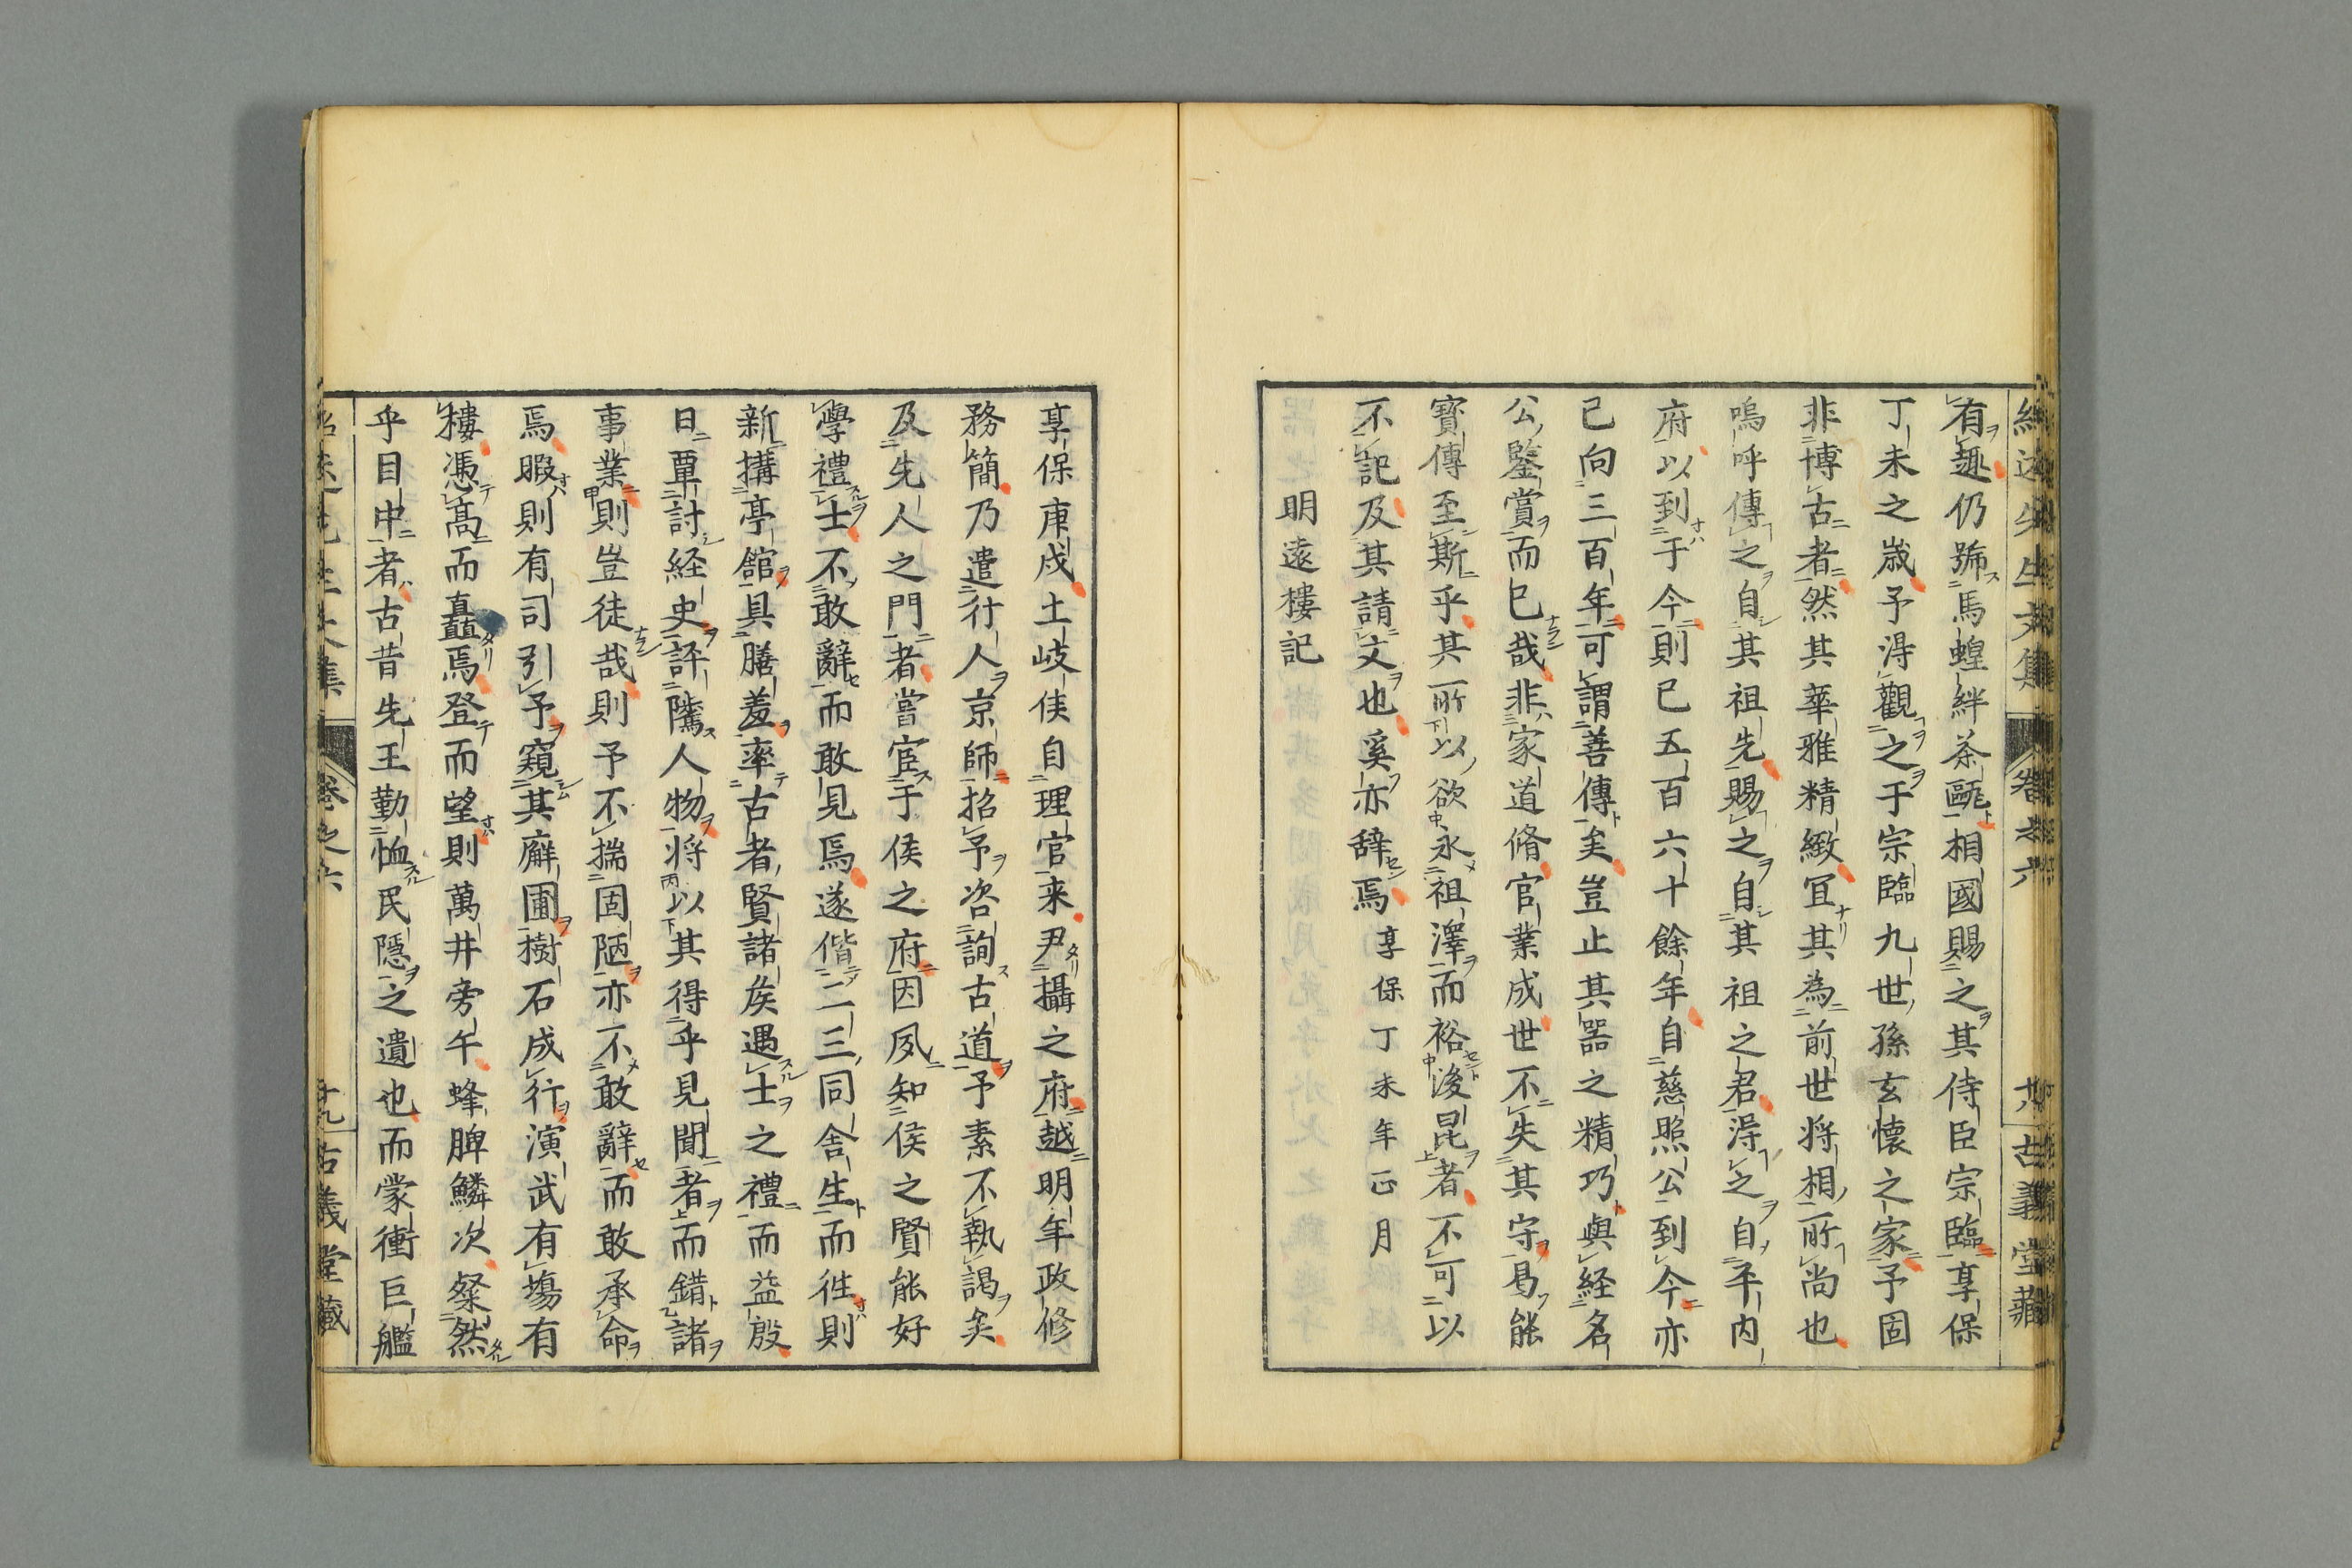 紹述先生文集 卷之六 十八 古義堂藏
有趣仍號馬蝗絆茶甌相國賜之其侍臣宗臨享保
丁未之歳予得觀之于宗臨九世孫玄懐之家予固
非博古者然其華雅精緻冝其為前世将相所尚也
嗚呼傳之自其祖先賜之自其祖之君得之自平内
府以到于今則已五百六十餘年自慈照公到今亦
已向三百年可謂善傳矣豈止其噐之精巧與経名
公鑒賞而已哉非家道脩官業成世不失其守曷能
寳傳至斯乎其所以欲永祖澤而裕後昆者不可以
不記及其請文也奚亦辞焉 享保丁未年正月
明遠樓記
享保庚戌土岐侯自理官来尹攝之府越明年政修
務簡乃遣行人京師招予咨詢古道予素不執謁矣
及先人之門者嘗宦于侯之府因夙知侯之賢能好
學禮士不敢辭而敢見焉遂偕二三同舎生而徃則
新搆亭館具膳羞率古者賢諸矦遇士之禮而益殷
日覃討経史評隲人物将以其得乎見聞者而錯諸
事業則豈徒哉則予不揣固陋亦不敢辭而敢承命
焉暇則有司引予窺其廨圃樹石成行演武有塲有
樓憑髙而矗焉登而望則萬井旁午蜂脾鱗次粲然
乎目中者古昔先王勤恤民隱之遺也而蒙衝巨艦
紹述先生文集 卷之六 十九 古義堂藏